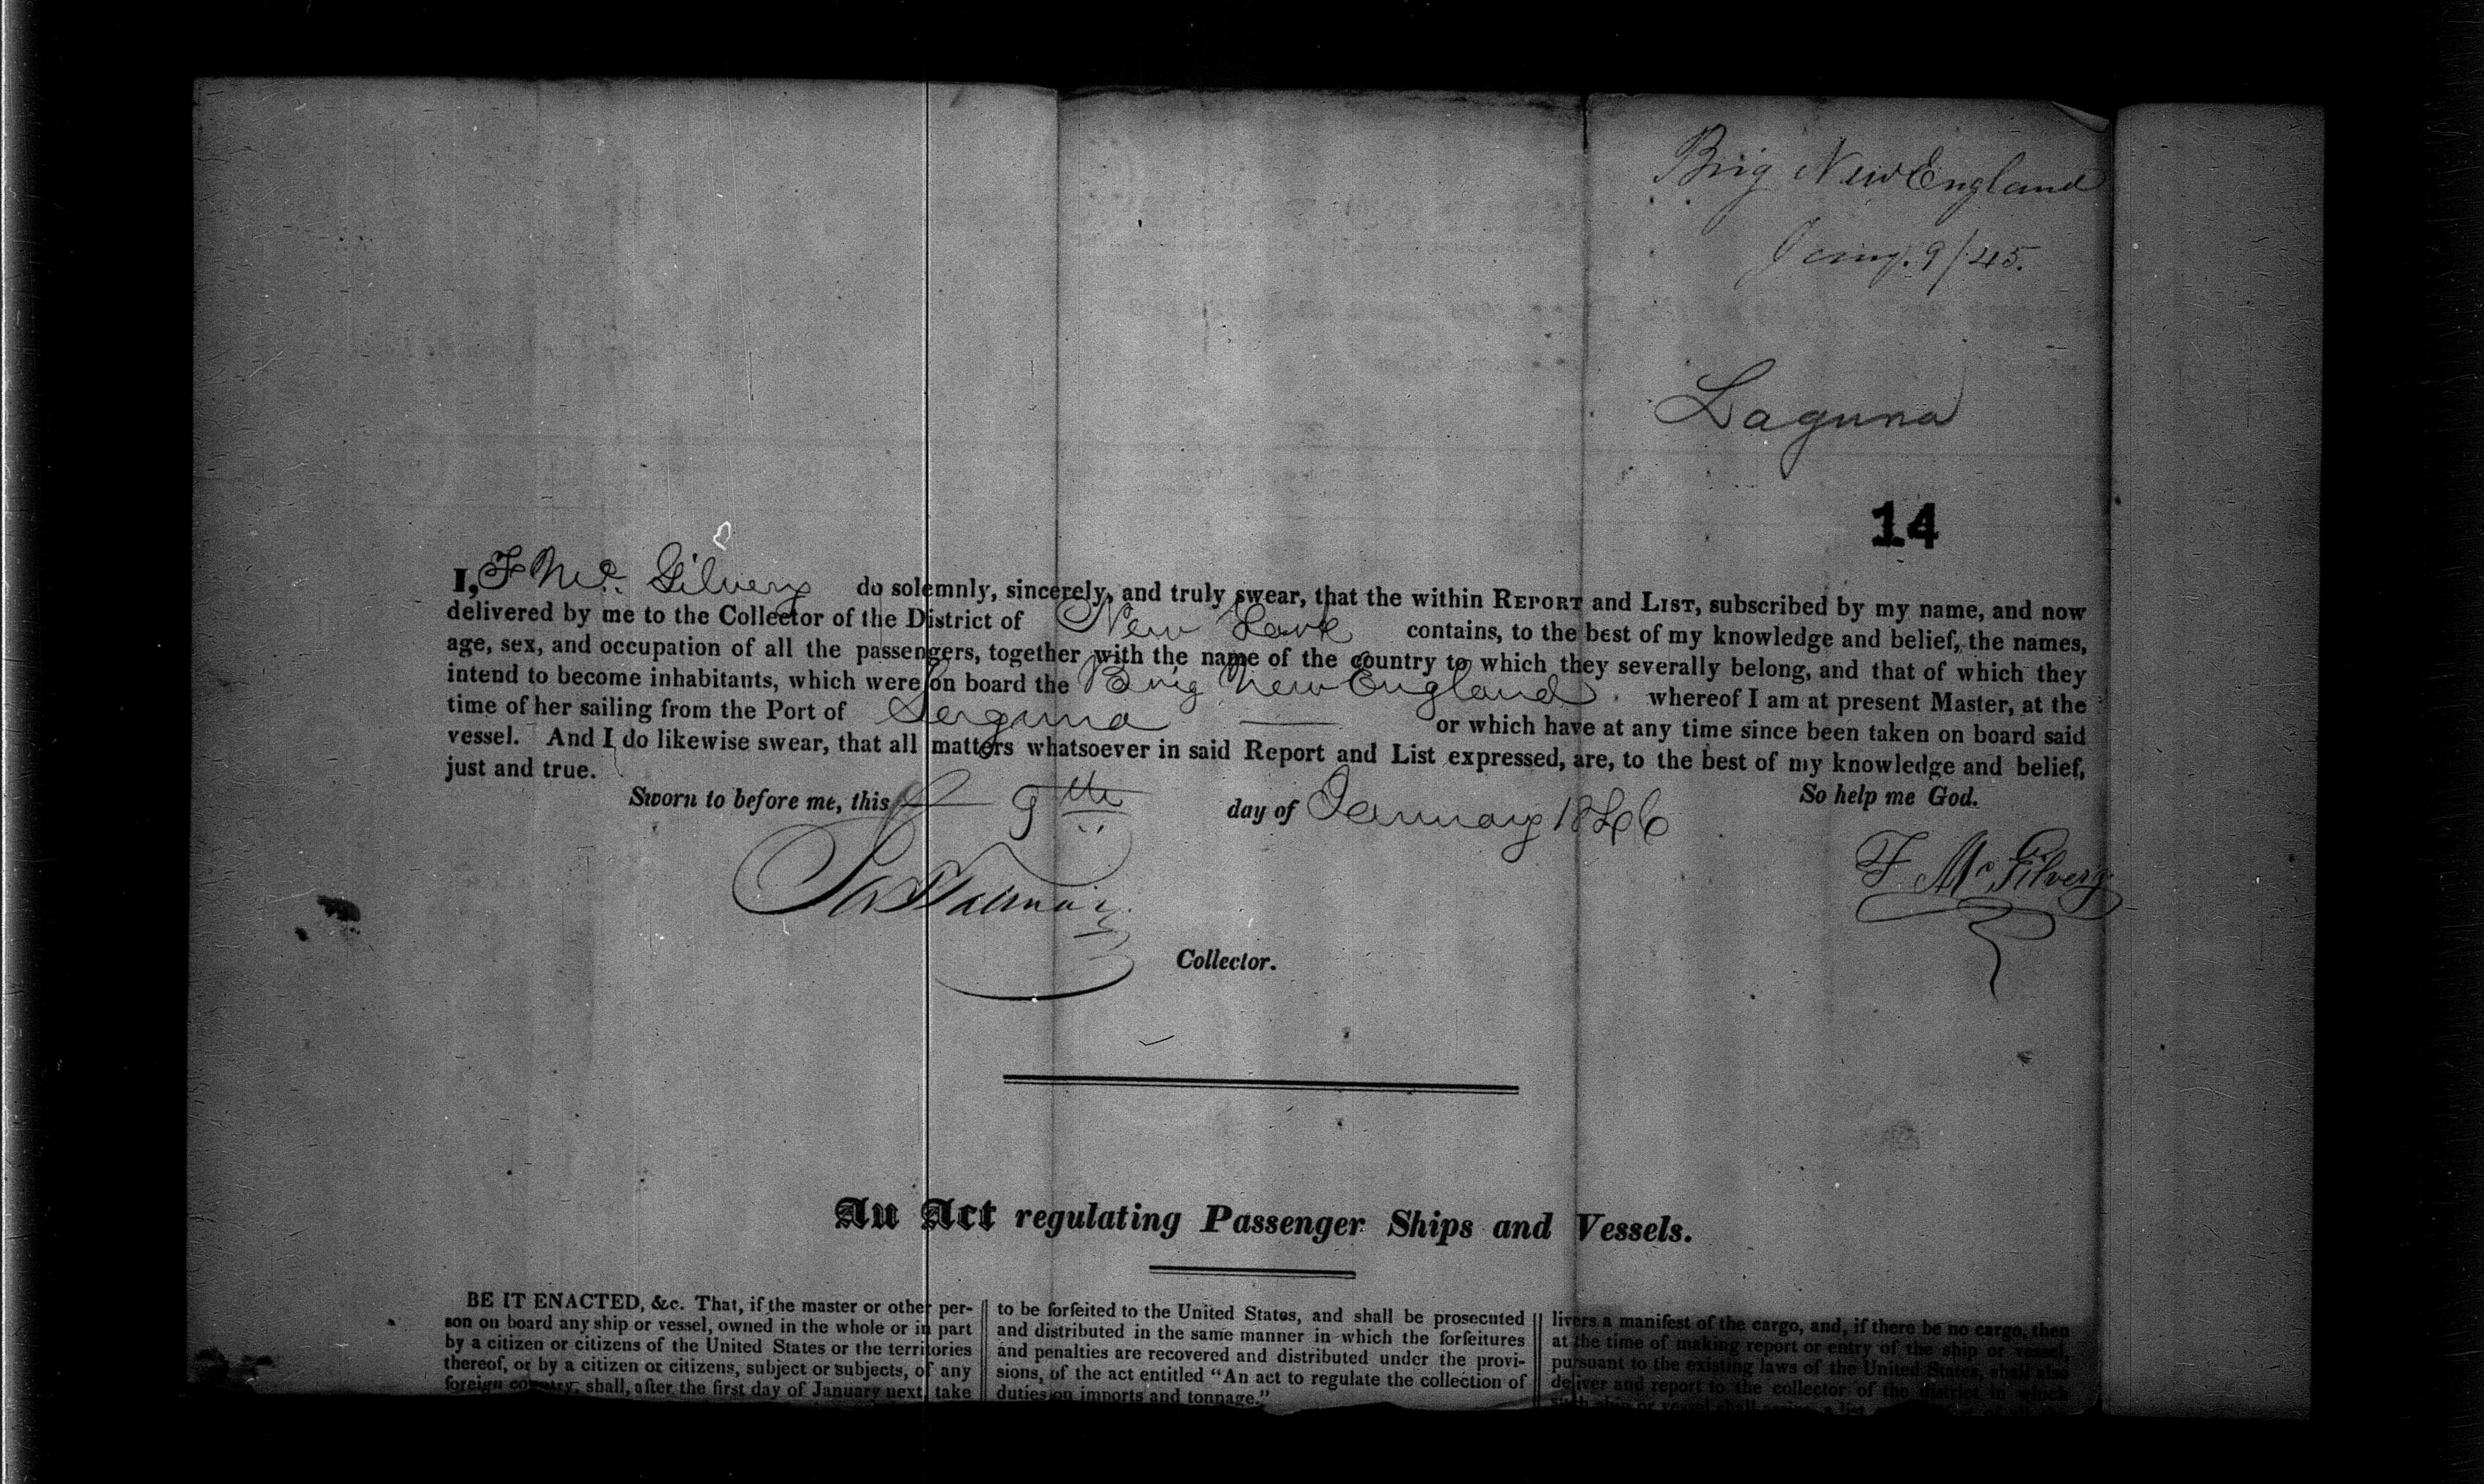 Brig New England
Jany. 9/45.
Laguna
14
I, F Mc. Gilvery do solemnly, sincerely, and truly swear, that the within REPORT and LIST, subscribed by my name, and now
delivered by me to the Collector of the District of New York contains, to the best of my knowledge and belief, the names,
age, sex, and occupation of all the passengers, together with the name of the country to which they severally belong, and that of which they
intend to become inhabitants, which were on board the Brig New England whereof I am at present Master, at the
time of her sailing from the Port of Laguna or which have at any time since been taken on board said
vessel. And I do likewise swear, that all matters whatsoever in said Report and List expressed, are, to the best of my knowledge and belief,
just and true.
So help me God.
Sworn to before me, this 9th day of January 1846
F. Mc Gilvery
Collector.
An Act regulating Passenger Ships and Vessels.
BE IT ENACTED, &c. That, if the master or other per-
son on board any ship or vessel, owned in the whole or in part
by a citizen or citizens of the United States or the territories
thereof, or by a citizen or citizens, subject or subjects, of any
foreign country, shall, after the first day of January next, take
to be forfeited to the United States, and shall be prosecuted
and distributed in the same manner in which the forfeitures
and penalties are recovered and distributed under the provi-
sions, of the act entitled "An act to regulate the collection of
duties on imports and tonnage."
livers a manifest of the cargo, and, if there be no cargo, then
at the time of making report or entry of the ship or vessel,
pursuant to the existing laws of the United States, shall also
deliver and report to the collector of the district in which
such ship or vessel shall a list